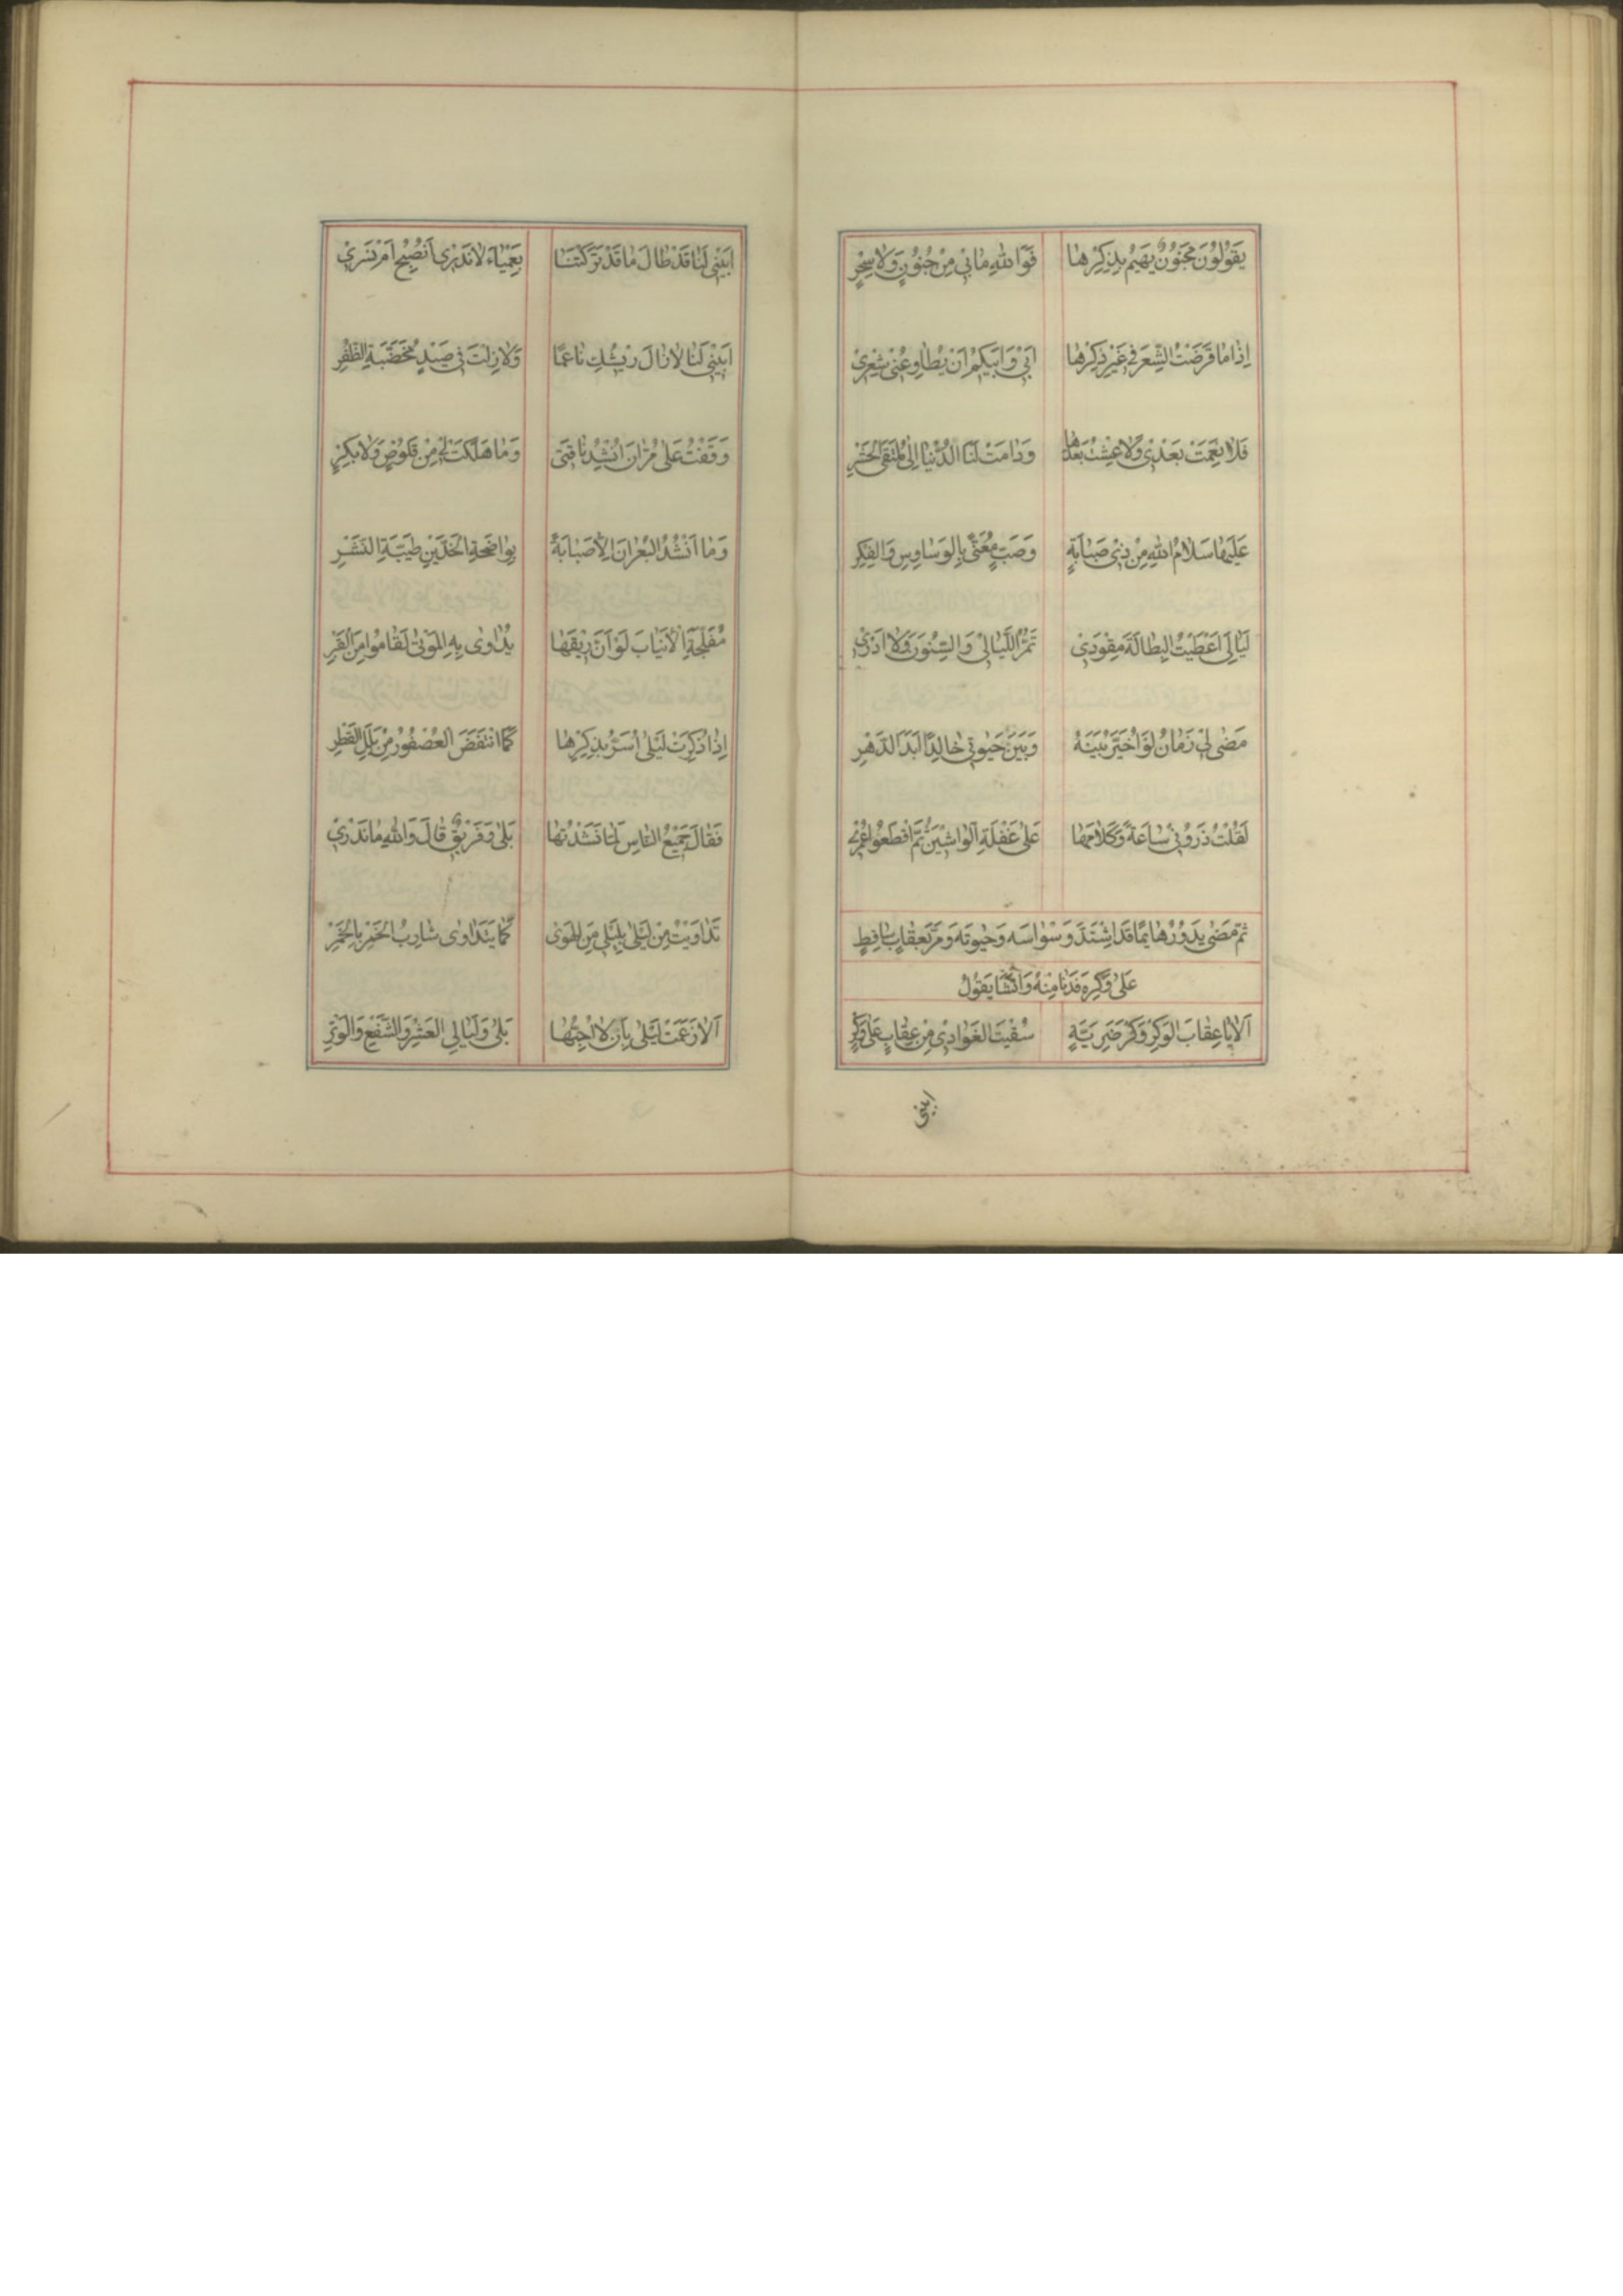 يَقُولُونَ مَجْنُونٌ يَهِيمُ بِذِكْرِهَا فَوَاللهِ مَا بِي مِنْ جُنُونٍ وَلَا سِحْرٍ
اِذَا مَا قَرَضْتُ الشِّعْرَ فِي غَيْرِ ذِكْرِهَا اَبِي وَاَبِيكُمْ اَنْ يُطَاوِعُنِي شِعْرِي
فَلَا نَعِمَتْ بَعْدِي وَلَا عِشْتُ بَعْدَهَا وَدَامَتْ لَنَا الدُّنْيَا اِلَى مُلْتَقَى الْحَشْرِ
عَلَيْهَا سَلَامُ اللهِ مِنْ ذِي صَبَابَةٍ وَصَبٍّ مُعَنًّى بِالْوَسَاوِسِ وَالْفِكْرِ
لَيَالِيَ اَعْطَيْتُ الْبِطَالَةَ مِقْوَدِي تَمُرُّ اللَّيَالِي وَالسِّنُونَ وَلَا اَدْرِي
مَضَى لِي زَمَانٌ لَوْ اُخَيَّرُ بَيْنَهُ وَبَيْنَ حَيٰوتِي خَالِدًا اَبَدَ الدَّهْرِ
لَقُلْتُ ذَرُونِي سَاعَةً وَكَلَامَهَا عَلَى غَفْلَةِ الْوَاشِينَ ثُمَّ اقْطَعُوا عُمْرِي
ثُمَّ مَضَى يَدُورُ هَائِمًا قَدِ اشْتَدَّ وَسْوَاسَهُ وَحَيٰوتَهُ وَمَرَّ بَعِقَابٍ سَاقِطٍ
عَلَى وَكْرِهِ فَدَنَا مِنْهُ وَاَنْشَأَ يَقُولُ
اَلَا يَا عِقَابَ الْوَكْرِ وَكْرِ ضَرِيَّةٍ سُقِيتَ الْغَوَادِي مِنْ عِقَابٍ عَلَى وَكْرٍ
ابيني
اَبِينِي لَنَا قَدْ طَالَ مَا قَدْ تَرَكْتَنَا بِعَمْيَاءَ لَا نَدْرِي اَنُصْبِحُ اَمْ نَسْرِي
اَبِينِي لَنَا لَا زَالَ رِيشُكِ نَاعِمًا وَلَا زِلْتَ فِي صَيْدٍ مُخَضَّبَةِ الظُّفْرِ
وَقَفْتُ عَلَى مُرَّانَ اَنْشُدُ نَاقَتِي وَمَا هَلَكَتْ لِي مِنْ قَلُوصٍ وَلَا بَكْرٍ
وَمَا اَنْشُدُ الْبُعْرَانَ اِلَّا صَبَابَةً بِوَاضِحَةِ الْخَدَّيْنِ طَيِّبَةِ النَّشْرِ
مُفَلَّجَةِ الْاَنْيَابِ لَوْ اَنَّ رِيقَهَا يُدَاوَى بِهِ الْمَوْتَى لَقَامُوا مِنَ الْقَبْرِ
اِذَا ذُكِرَتْ لَيْلَى اُسَرُّ بِذِكْرِهَا كَمَا انْتَفَضَ الْعُصْفُورُ مِنْ بَلَلِ الْقَطْرِ
فَقَالَ جَمِيعُ النَّاسِ لَمَّا نَشَدْتُهَا بَلَى وَفَرِيقٌ قَالَ وَاللهِ مَا نَدْرِي
تَدَاوَيْتُ مِنْ لَيْلَى بِلَيْلَى مِنَ الْهَوَى كَمَا يَتَدَاوَى شَارِبُ الْخَمْرِ بِالْخَمْرِ
اَلَا زَعَمَتْ لَيْلَى بِاَنْ لَا اُحِبُّهَا بَلَى وَلَيَالِي الْعَشْرِ وَالشَّفْعِ وَالْوَتْرِ